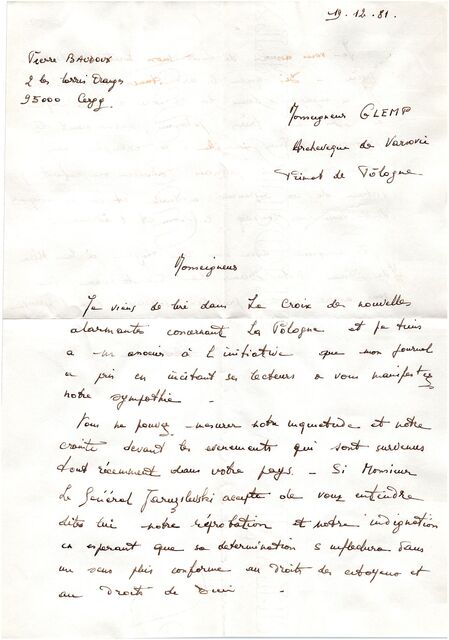 19.12.81.
Pierre BAUDOUX
2 les terres Oranges
95000 Cergy.
Monseigneur GLEMP
Archeveque de Varsovie
Primat de Pologne
Monseigneur
Je viens de lire dans La Croix des nouvelles
alarmantes concernant La Pologne et je tiens
a m'associer à l'initiative que mon journal
a pris en incitant ses lecteurs a vous manifester
notre sympathie.
Vous ne pouvez mesurer notre inquietude et notre
crainte devant les evenements qui sont survenus
tout récemment dans votre pays. - Si Monsieur
Le Général Jaruzlewski accepte de vous entendre
dites lui notre réprobation et notre indignation
en esperant que sa determination s'inflechira dans
un sens plus conforme au droits des citoyens et
au Droits de Dieu.